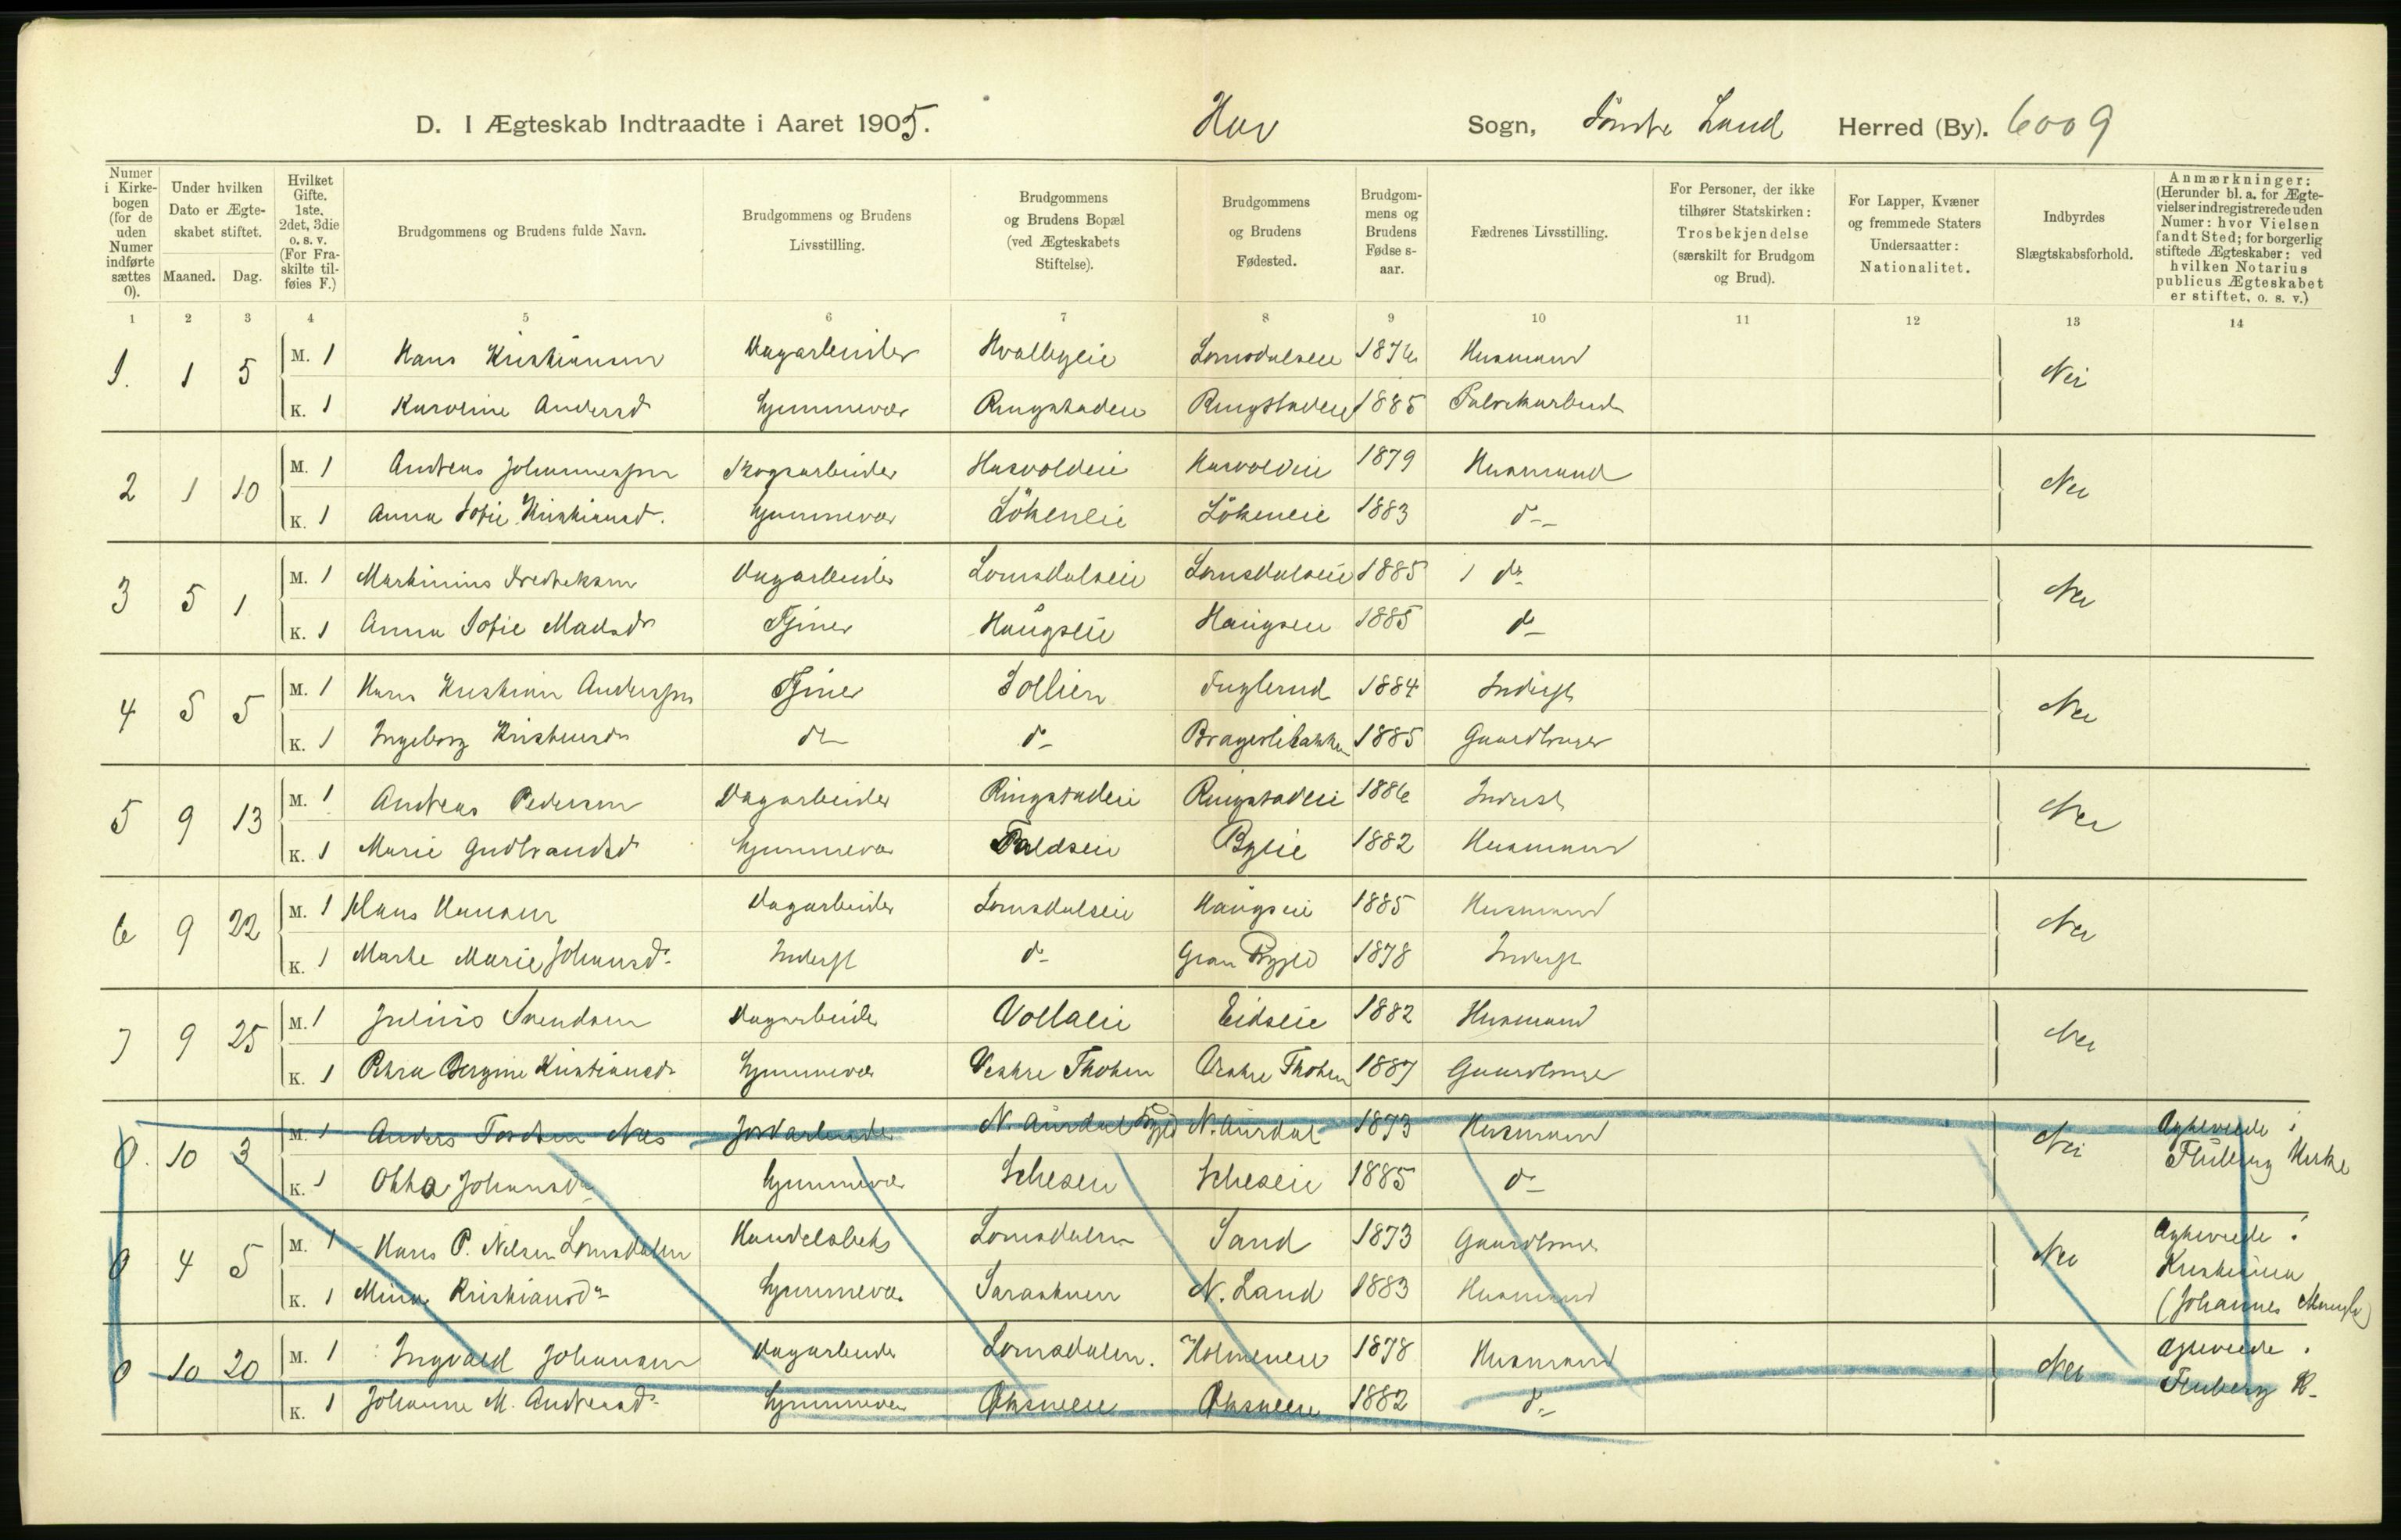 D. I Ægteskab Indtraadte i Aaret 1905. Hov Sogn, Søndre Land Herred (By). 6009
Numer i Kirkebogen (for de uden Numer indførte sættes 0).
Under hvilken Dato er Ægteskabet stiftet.
Maaned. Dag.
Hvilket Gifte. 1ste, 2det, 3die o. s. v. (For Fraskilte tilføies F.)
Brudgommens og Brudens fulde Navn.
Brudgommens og Brudens Livsstilling.
Brudgommens og Brudens Bopæl (ved Ægteskabets Stiftelse).
Brudgommens og Brudens Fødested.
Brudgommens og Brudens Fødselsaar.
Fædrenes Livsstilling.
For Personer, der ikke tilhører Statskirken: Trosbekjendelse (særskilt for Brudgom og Brud).
For Lapper, Kvæner og fremmede Staters Undersaatter: Nationalitet.
Indbyrdes Slægtskabsforhold.
Anmærkninger: (Herunder bl. a. for Ægtevielser indregistrerede uden Numer: hvor Vielsen fandt Sted; for borgerlig stiftede Ægteskaber: ved hvilken Notarius publicus Ægteskabet er stiftet, o. s. v.)
1 2 3 4 5 6 7 8 9 10 11 12 13 14
1. 1 5 M. 1 Hans Kristiansen Dagarbeider Hvalbyeie Lomsdalseie 1876 Husmand Nei
K. 1 Karoline Andersd Hjemmevær Ringstadeie Ringstadeie 1885 Fabrikarbeid
2 1 10 M. 1 Andreas Johannessen Skogsarbeider Hasvoldeie Hasvoldeie 1879 Husmand Nei
K. 1 Anna Sofie Kristiansd. Hjemmevær Lökeneie Lökeneie 1883 d--
3 5 1 M. 1 Martinius Fredriksen Dagarbeider Lomsdalseie Lomsdalseie 1885 1 do Nei
K. 1 Anna Sofie Madsdr Tjener Haugseie Haugseie 1885 d-
4 5 5 M. 1 Hans Kristian Anderssen Tjener Sollien Fuglerud 1884 Inderst Nei
K. 1 Ingeborg Kristensdr d- d- Bragerlibakken 1885 Gaardbruger
5 9 13 M. 1 Andreas Pedersen Dagarbeider Ringstadeie Ringstadeie 1886 Inderst Nei
K. 1 Marie Gudbrandsd Hjemmevær Paldseie Byeie 1882 Husmand
6 9 22 M. 1 Hans Hansen Dagarbeider Lomsdalseie Haugseie 1885 Husmand Nei
K. 1 Marte Marie Johansd. Inderst d- Gran Bygd 1878 Inderst
7 9 25 M. 1 Julius Svendsen Dagarbeider Vollaeie Eidseie 1882 Husmand Nei
K. 1 Petra Bergine Kristiansdr Hjemmevær Vestre Thoken Vestre Thoken 1887 Gaardbruger
0. 10 3 M. 1 Anders Tordsen Næs Jordarbeider N. Aurdal Bygd N. Aurdal 1873 Husmand Nei Ægteviede i
Fluberg Kirke
K. 1 Okka Johansdr Hjemmevær 1885 d-
0 4 5 M. 1 Hans P. Nilsen Lomsdalen Handelsbetj Lomsdalen Sand 1873 Gaardbruger Nei Ægteviede i
Kristiania
(Johannes Menigh)
K. 1 Mina Kristiansdr Hjemmevær N. Land 1883 Husmand
0 10 20 M. 1 Ingvald Johansen Dagarbeider Lomsdalen. Holmeneie 1878 Husmand Nei Ægteviede i
Fluberg K-
K. 1 Johanne M. Andreasd. Hjemmevær 1882 d-